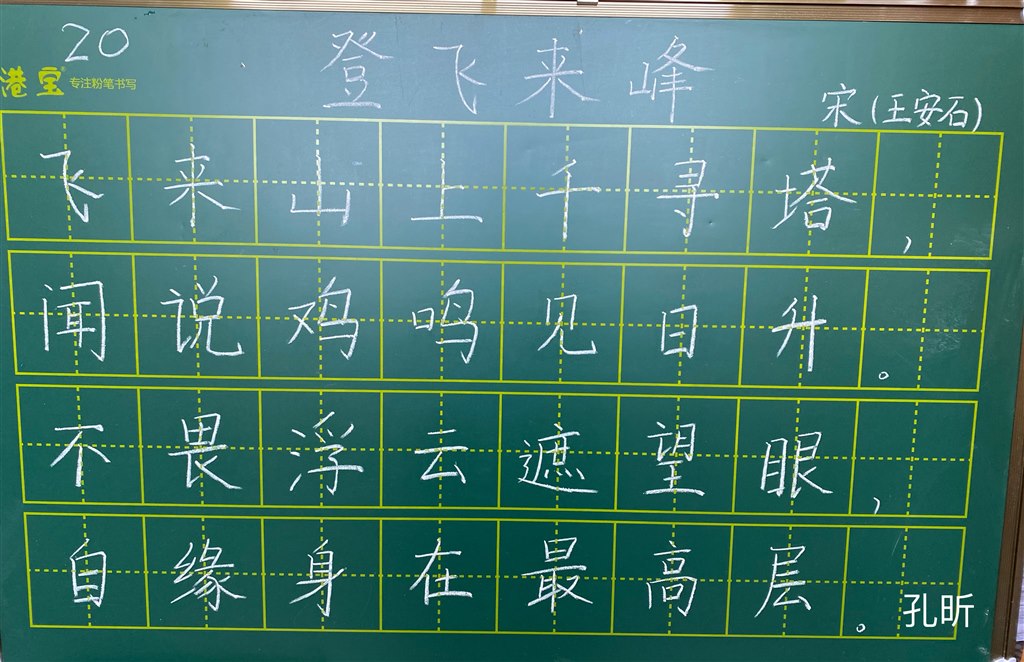 20
登飞来峰
港宝 专注粉笔书写
宋(王安石)
飞来山上千寻塔,
闻说鸡鸣见日升。
不畏浮云遮望眼,
自缘身在最高层。
孔昕